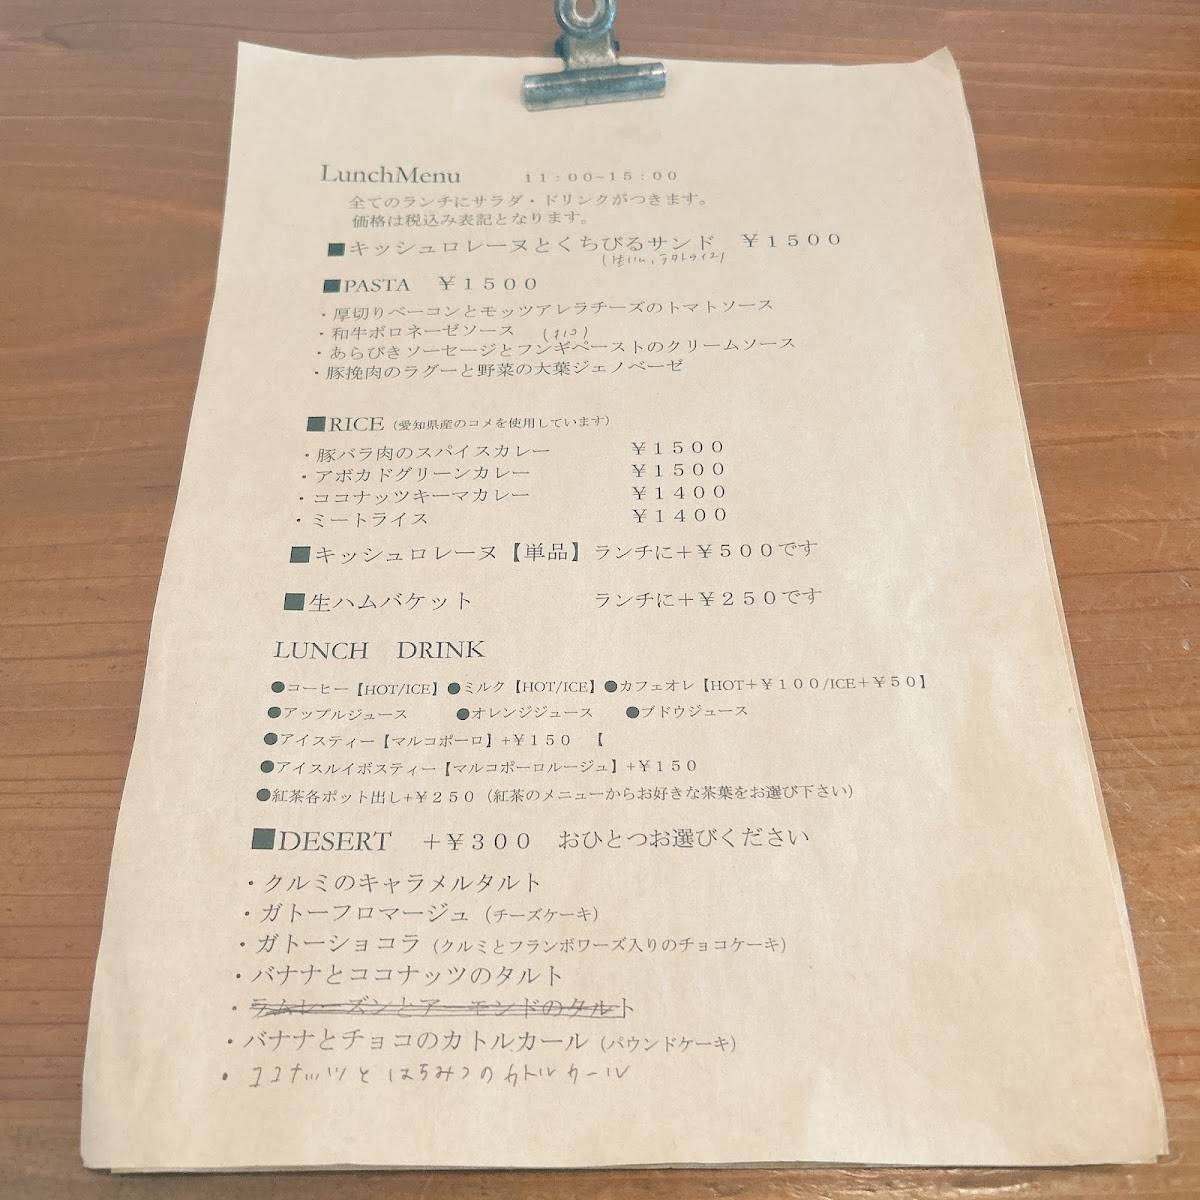 LunchMenu 11:00~15:00
全てのランチにサラダ・ドリンクがつきます。
価格は税込み表記となります。
■キッシュロレーヌとくちびるサンド ￥1500
■PASTA ￥1500
・厚切りベーコンとモッツアレラチーズのトマトソース
・和牛ボロネーゼソース
・あらびきソーセージとフンギペーストのクリームソース
・豚挽肉のラグーと野菜の大葉ジェノベーゼ
■RICE（愛知県産のコメを使用しています）
・豚バラ肉のスパイスカレー ￥1500
・アボカドグリーンカレー ￥1500
・ココナッツキーマカレー ￥1400
・ミートライス ￥1400
■キッシュロレーヌ【単品】 ランチに＋￥500です
■生ハムバケット ランチに＋￥250です
LUNCH DRINK
●コーヒー【HOT/ICE】●ミルク【HOT/ICE】●カフェオレ【HOT＋￥100/ICE＋￥50】
●アップルジュース ●オレンジジュース ●ブドウジュース
●アイスティー【マルコポーロ】+￥150 【
●アイスルイボスティー【マルコポーロルージュ】+￥150
●紅茶各ポット出し+￥250（紅茶のメニューからお好きな茶葉をお選び下さい）
■DESERT ＋￥300 おひとつお選びください
・クルミのキャラメルタルト
・ガトーフロマージュ（チーズケーキ）
・ガトーショコラ（クルミとフランボワーズ入りのチョコケーキ）
・バナナとココナッツのタルト
・ラムレーズンとアーモンドのタルト
・バナナとチョコのカトルカール（パウンドケーキ）
・ココナッツとはちみつのカトルカール